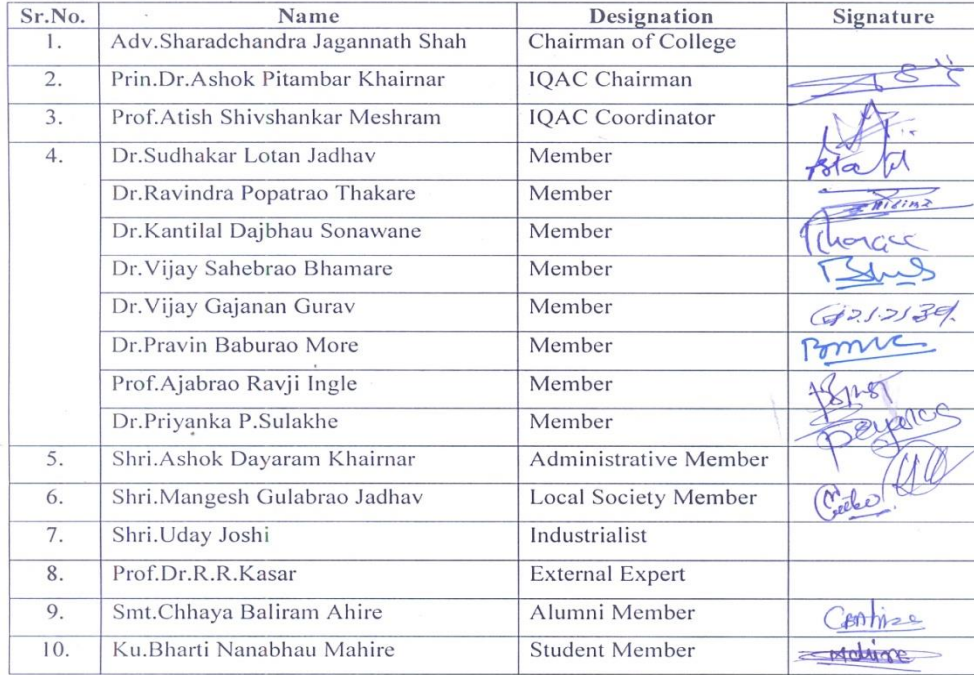 Sr.No. Name Designation Signature
1. Adv.Sharadchandra Jagannath Shah Chairman of College
2. Prin.Dr.Ashok Pitambar Khairnar IQAC Chairman
3. Prof.Atish Shivshankar Meshram IQAC Coordinator
4. Dr.Sudhakar Lotan Jadhav Member
Dr.Ravindra Popatrao Thakare Member
Dr.Kantilal Dajbhau Sonawane Member
Dr.Vijay Sahebrao Bhamare Member
Dr.Vijay Gajanan Gurav Member
Dr.Pravin Baburao More Member
Prof.Ajabrao Ravji Ingle Member
Dr.Priyanka P.Sulakhe Member
5. Shri.Ashok Dayaram Khairnar Administrative Member
6. Shri.Mangesh Gulabrao Jadhav Local Society Member
7. Shri.Uday Joshi Industrialist
8. Prof.Dr.R.R.Kasar External Expert
9. Smt.Chhaya Baliram Ahire Alumni Member
10. Ku.Bharti Nanabhau Mahire Student Member